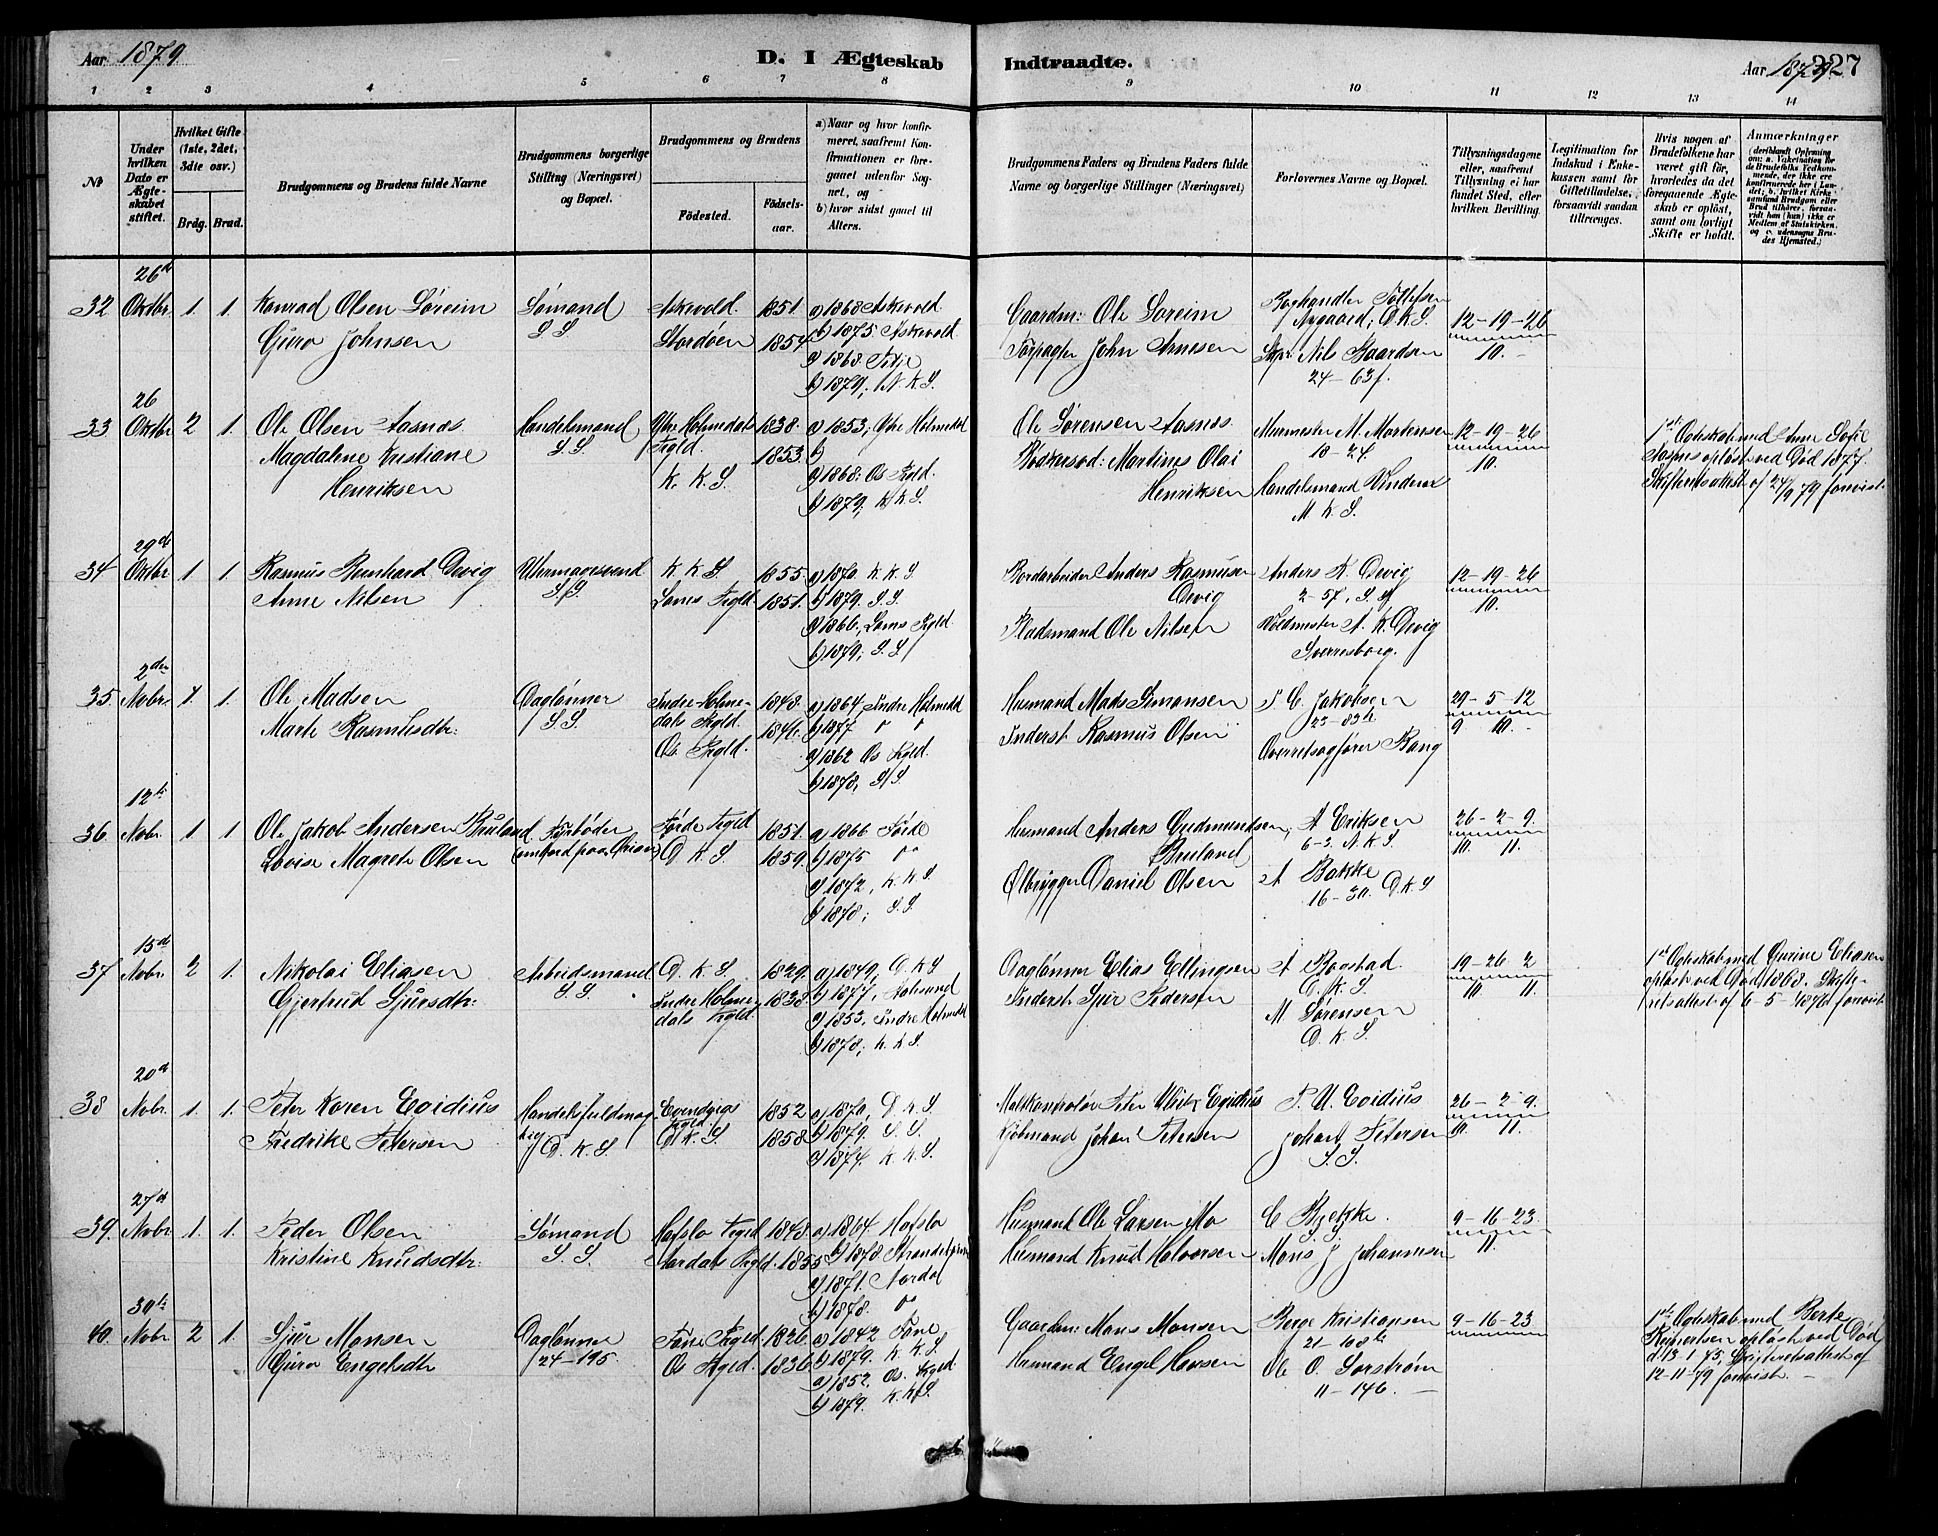 Aar 1879
D. I Ægteskab Indtraadte.
Aar 1879.
227
1 2 3 4 5 6 7 8 9 10 11 12 13 14
No
Under hvilken Dato er Ægteskabet stiftet.
Hvilket Gifte (1ste, 2det, 3die osv.)
Brdg. Brud.
Brudgommens og Brudens fulde Navne
Brudgommens borgerlige Stilling (Næringsvei) og Bopæl.
Brudgommens og Brudens
Födested.
Födselsaar.
a) Naar og hvor konfirmeret, saafremt Konfirmationen er foregaaet udenfor Sognet, og
b) hvor sidst gaaet til Alters.
Brudgommens Faders og Brudens Faders fulde Navne og borgerlige Stillinger (Næringsvei)
Forlovernes Navne og Bopæl.
Tillysningsdagene eller, saafremt Tillysning ei har fundet Sted, efter hvilken Bevilling.
Legitimation for Indskud i Enkekassen samt for Giftetilladelse, forsaavidt saadan tiltrænges.
Hvis nogen af Brudefolkene har været gift för, hvorledes da det foregaaende Ægteskab er oplöst, samt om lovligt Skifte er holdt.
Anmærkninger (deriblandt Oplysning om: a. Vakcination for de Brudefolks Vedkommende, der ikke ere konfirmerede her i Landet; b. hvilket Kirkesamfund Brudgom eller Brud tilhörer, forsaavidt han (hun) ikke er Medlem af Statskirken, og c. udensogns Brudes Hjemsted.)
26d
32 Oktbr. 1. 1. Konrad Olsen Søreim Sømand Askevold 1851. a) 1868 Askevold Gaardm: Ole Søreim Boghandler Tollefsen 12-19-26
Guro Johnsen S S Stordøen 1854. b) 1875. Askevold Nygaard, D.K.S. 10.
a) 1868 Fitje John Arnesen Nils Baardsen
b) 1879, N.K.S. 24-63f.
26
33 Oktbr 2 1. Ole Olsen Aasnæs Handelsmand Ytre Holmedals 1838. a) 1853, Ytre Holmedal Ole Sørensen Aasnæs Murmester M. Mortensen 12-19-26 1ste Ægteskab med Anne Sofie
Magdalene Kristiane S.S. Prgld. 1853. b) Martines Olai 18-24. 10. opløst ved Død 1877.
Henriksen K. K. S. a) 1868: Os Prgld. Henriksen Handelsmand Skifteretsattest af 24/9 79 forevist.
b) 1879, K.K.S. M. K. S.
29de
34 Oktbr 1 1. Rasmus Bernhard Devig Uhrmagersvend K. K. S. 1855. a) 1870. K. K. S. Anders Rasmusen Anders K. Devig 12-19-26
Anne Nilsen S.S. Prgld. 1851. b) 1879. S.S. Devig 2-57, S.S. 10.
a) 1866, Prgld. Pladsmand Ole Nilsen A. K. Devig
b) 1879, S.S. Sverresborg.
2den
35. Novbr. 1 1. Ole Madsen Daglønner Indre-Holme- 1848. a) 1864, Indre Holmedal Husmand Mads Simonsen P. C. Jakobsen 29-5-12
Marte Rasmusdtr: S.S. dals Prgld 1846. b) 1877 " " Inderst Rasmus Olsen 23-83b 9 10.
Os Prgld. a) 1862 Os Prgld. Overretssagfører Bang
b) 1878, S.S.
12te
36. Nobr. 1 1 Ole Jakob Andersen Bruland Fyrbøder Førde Prgld 1851. a) 1866 Førde Husmand Anders Gudmundsen A Eriksen 26-2-9.
Lovise Magrete Olsen ombord paa Orion D K S 1859. b) 1875 " Bruland 6-3. N.K.S. 10 11.
a) 1872, K.K.S Ølbrygger Daniel Olsen A Bakke
b) 1878; S.S. 16-30. D.K.S
15d
37 Novbr. 2 1. Nikolai Eliasen Arbeidsmand D. K. S. 1829. a) 1849, D K S Daglønner Elias Ellingsen A Bogstad. 19-26 2 1ste Ægteskab med Eliasen
Gjertrud Sjursdtr: S.S. Indre Holme- 1838. b) 1877, Aalesund Inderst Sjur Pedersen D. K. S 10 11. opløst ved Død 1868. Skifte-
dals Prgld. a) 1853, Indre Holmedal M Sørensen retsattest af 6-5 forevist
b) 1878, K.K.S D. K. S.
20d
38 Nobr. 1. 1. Peter Koren Egidius Handelsfuldmæg Evendvigs 1852 a) 1870, D K S Peter Ulrik Egidius P. U. Egidius 26-2-9.
Fredrike Petersen tig D. K. S Prgld. D K S 1858 b) 1879. S S. Kjøbmand Johan Petersen Johan Petersen 10. 11.
a) 1874. K. K. S. S.S.
27d
39. Nobr. 1. 1. Peder Olsen Sømand Hafslo Prgld 1848. a) 1864 Hafslo Husmand Ole Larsen Mo C Bjekke. 9-16-23.
Kristine Knudsdtr: S.S. Aardals Prgld. 1855 b) 1878 Husmand Knud Halvorsen S.S. Mons J Johannesen 11.
a) 1871. Aardal
b) 1878. "
30te
40. Nobr. 2 1. Sjur Monsen Daglønner Fane Prgld. 1826 a) 1842 Fane Gaardm: Mons Monsen Børge Kristiansen 9-16-23 1ste Ægteskab med Berte
Guro Engelsdtr 24-195. Os Prgld. 1836 b) 1879. K.K.S. Husmand Engel Hansen 21-108b opløst ved Død
a) 1852. Os Prgld Ole O. Sorstrøm d. 13-1 73, Skifteretsattest af
b) 1879. K.K.S. 11-146. 12-11-79 forevist.